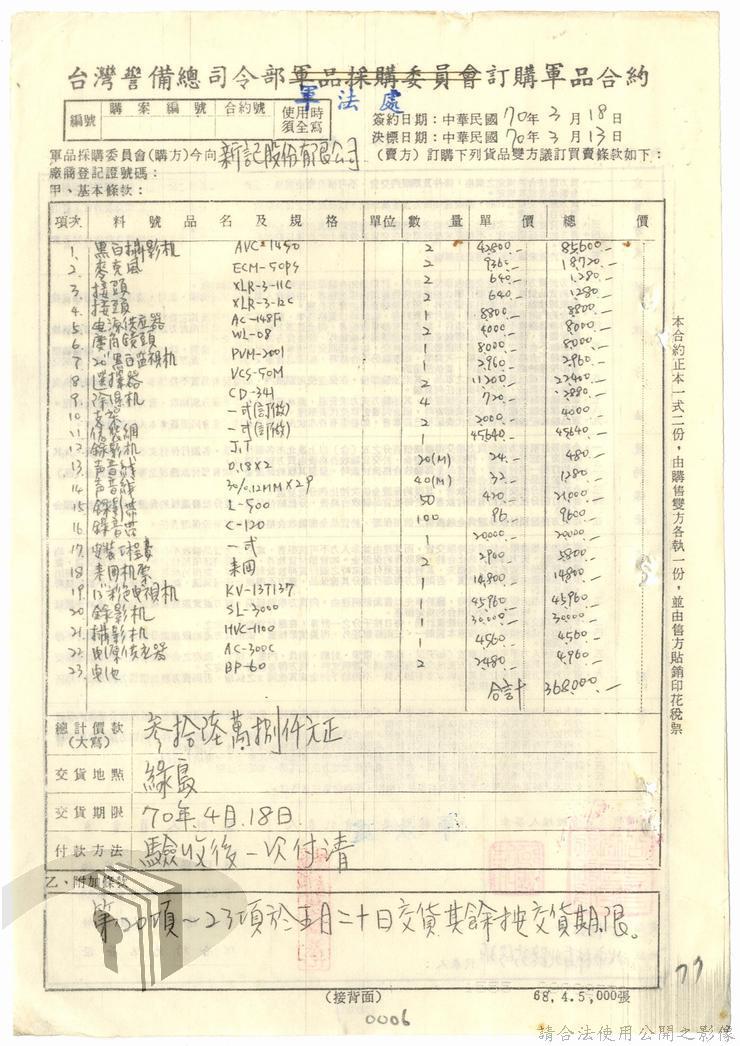 台灣警備總司令部軍品採購委員會訂購軍品合約
軍法處
編號 購案編號 合約號 使用時須全寫
簽約日期：中華民國70年3月18日
決標日期：中華民國70年3月13日
軍品採購委員會(購方)今向新記股份有限公司(賣方)訂購下列貨品雙方議訂買賣條款如下：
廠商登記證號碼：
甲、基本條款：
項次 料號品名及規格 單位 數量 單價 總價
1. 黑白攝影机 AVC-1450 2 42800.- 85600.-
2. 麥克風 ECM-50PS 2 9360.- 18,720.-
3. 接頭 XLR-3-11C 2 640.- 1,280.-
4. 接頭 XLR-3-12C 2 640.- 1280.-
5. 电源供应器 AC-148F 1 8800.- 8800.-
6. 廣角鏡頭 WL-08 2 4000.- 8000.-
7. 20"黑白監視机 PVM-2001 1 8000.- 8000.-
8. 選擇器 VCS-50M 1 2,960.- 2,960.-
9. CD-341 2 11200.- 22400.-
10. 一式(訂做) 4 720.- 2880.-
11. 一式(訂做) 2 2000.- 4000.-
12. 錄影机 J.T 1 45640.- 45640.-
13. 声音線 0.18X2 20(M) 24.- 480.-
14. 声音線 30/0.12MMX2P 40(M) 32.- 1280.-
15. 錄影帶 L-500 50 420.- 21,000.-
16. 錄音帶 C-120 100 96.- 9600.-
17. 安裝工程費 一式 1 20000.- 20000.-
18. 来回机票 来回 2 2,900.- 5800.-
19. 13"彩色电視机 KV-1371S7 1 14,800.- 14800.-
20. 錄影机 SL-3000 1 45,960.- 45,960.-
21. 攝影机 HVC-1100 1 30,000.- 30000.-
22. 电源供应器 AC-300C 1 4,560.- 4,560.-
23. 电池 BP-60 2 2,480.- 4,960.-
合計 368,000.-
總計價款(大寫) 參拾陸萬捌仟元正
交貨地點 綠島
交貨期限 70年.4月.18日
付款方法 驗收後一次付清
乙、附加條款
第20項～23項於五月二十日交貨其餘按交貨期限。
(接背面)
68.4.5,000張
0006
77
本合約正本一式二份，由購售雙方各執一份，並由售方貼銷印花稅票
請合法使用公開之影像